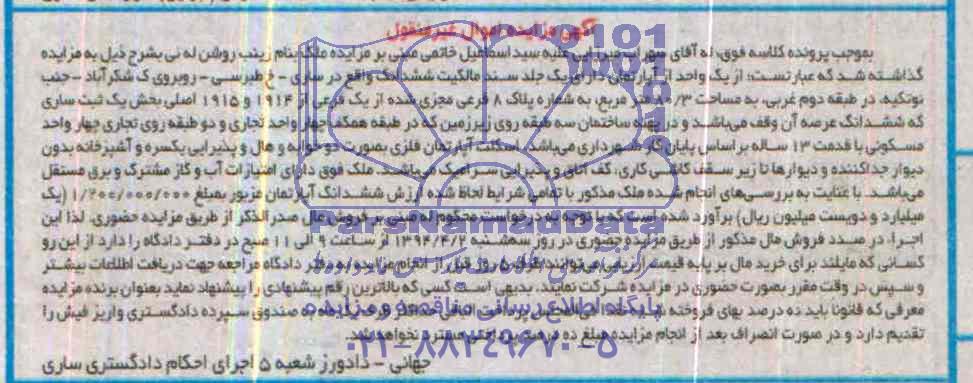 آگهی مزایده اموال غیرمنقول
بموجب پرونده کلاسه فوق، له آقای سهراب میرزایی علیه سید اسماعیل خاتمی مبنی بر مزایده ملک بنام زینب روشن له نی بشرح ذیل به مزایده
گذاشته شد که عبارتست: از یک واحد از آپارتمان دارای یک جلد سند مالکیت ششدانگ واقع در ساری - خ طبرسی - روبروی ک شکرآباد - جنب
نوتکیه، در طبقه دوم غربی، به مساحت ۸۰/۳ متر مربع، به شماره پلاک ۸ فرعی مجزی شده از یک فرعی از ۱۹۱۴ و ۱۹۱۵ اصلی بخش یک ثبت ساری
که ششدانگ عرصه آن وقف می‌باشد و در پهنه ساختمان سه طبقه روی زیرزمین که در طبقه همکف چهار واحد تجاری و دو طبقه روی تجاری چهار واحد
مسکونی با قدمت ۱۳ ساله براساس پایان کار شهرداری می‌باشد، اسکلت آپارتمان فلزی بصورت دو خوابه و هال و پذیرایی یکسره و آشپزخانه بدون
دیوار جداکننده و دیوارها تا زیر سقف کاشی کاری، کف اتاق و پذیرایی سرامیک می‌باشد. ملک فوق دارای امتیازات آب و گاز مشترک و برق مستقل
می‌باشد. با عنایت به بررسی‌های انجام شده ملک مذکور با تمامی شرایط لحاظ شده ارزش ششدانگ آپارتمان مزبور بمبلغ ۱/۲۰۰/۰۰۰/۰۰۰ (یک
میلیارد و دویست میلیون ریال) برآورد شده است که با توجه به درخواست محکوم له مبنی بر فروش مال صدرالذکر از طریق مزایده حضوری. لذا این
اجرا، در صدد فروش مال مذکور از طریق مزایده حضوری در روز سه‌شنبه ۱۳۹۴/۴/۲ از ساعت ۹ الی ۱۱ صبح در دفتر دادگاه را دارد از این رو
کسانی که مایلند برای خرید مال بر پایه قیمت ارزیابی می‌توانند ۵ روز قبل از انجام مزایده به دفتر دادگاه مراجعه جهت دریافت اطلاعات بیشتر
و سپس در وقت مقرر بصورت حضوری در مزایده شرکت نمایند. بدیهی است کسی که بالاترین رقم پیشنهادی را پیشنهاد نماید بعنوان برنده مزایده
معرفی که قانونا باید ده درصد بهای فروخته شده به صندوق سپرده دادگستری واریز فیش را
تقدیم دارد و در صورت انصراف بعد از انجام مزایده مبلغ ده درصد مسترد نخواهد شد.
جهانی - دادورز شعبه ۵ اجرای احکام دادگستری ساری
ParsNamadData
پایگاه اطلاع رسانی مناقصه و مزایده
۰۲۱-۸۸۳۴۹۶۷۰-۵